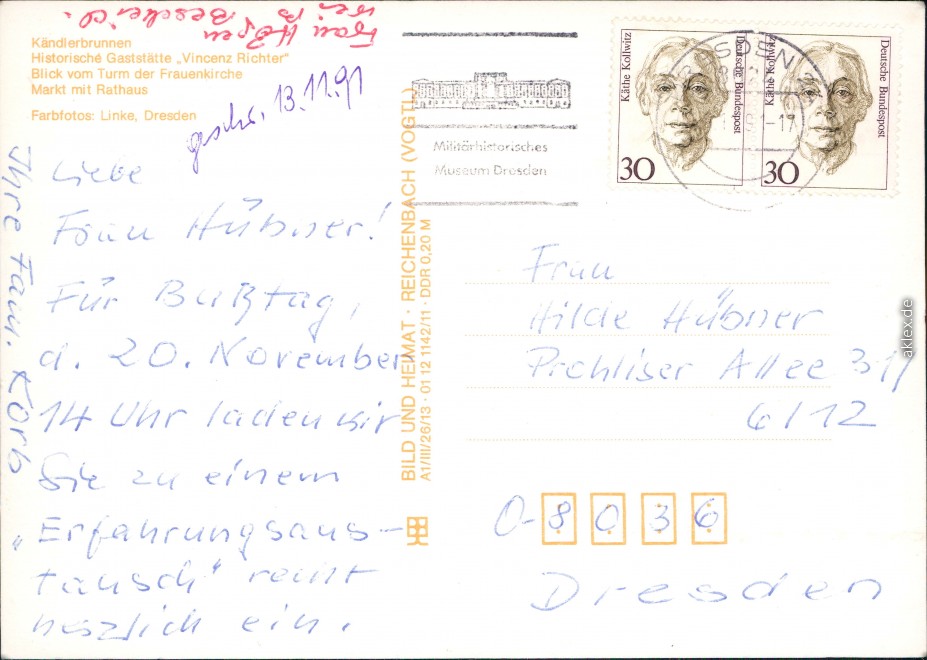 Frau
Bescheid.
Kändlerbrunnen
Historische Gaststätte „Vincenz Richter"
Blick vom Turm der Frauenkirche
Markt mit Rathaus
Farbfotos: Linke, Dresden
geschr. 13.11.91
Liebe
Frau Hübner!
Für Bußtag,
d. 20. November
14 Uhr laden wir
Sie zu einem
„Erfahrungsaus-
tausch" recht
herzlich ein.
Ihre Fam. Korb
BILD UND HEIMAT · REICHENBACH (VOGTL)
A1/III/26/13 · 01 12 1142/11 · DDR 0,20 M
Militärhistorisches
Museum Dresden
Käthe Kollwitz
Deutsche Bundespost
30
Käthe Kollwitz
Deutsche Bundespost
30
Frau
Hilde Hübner
Prohliser Allee 31
6/12
O-8036
Dresden
aklex.de